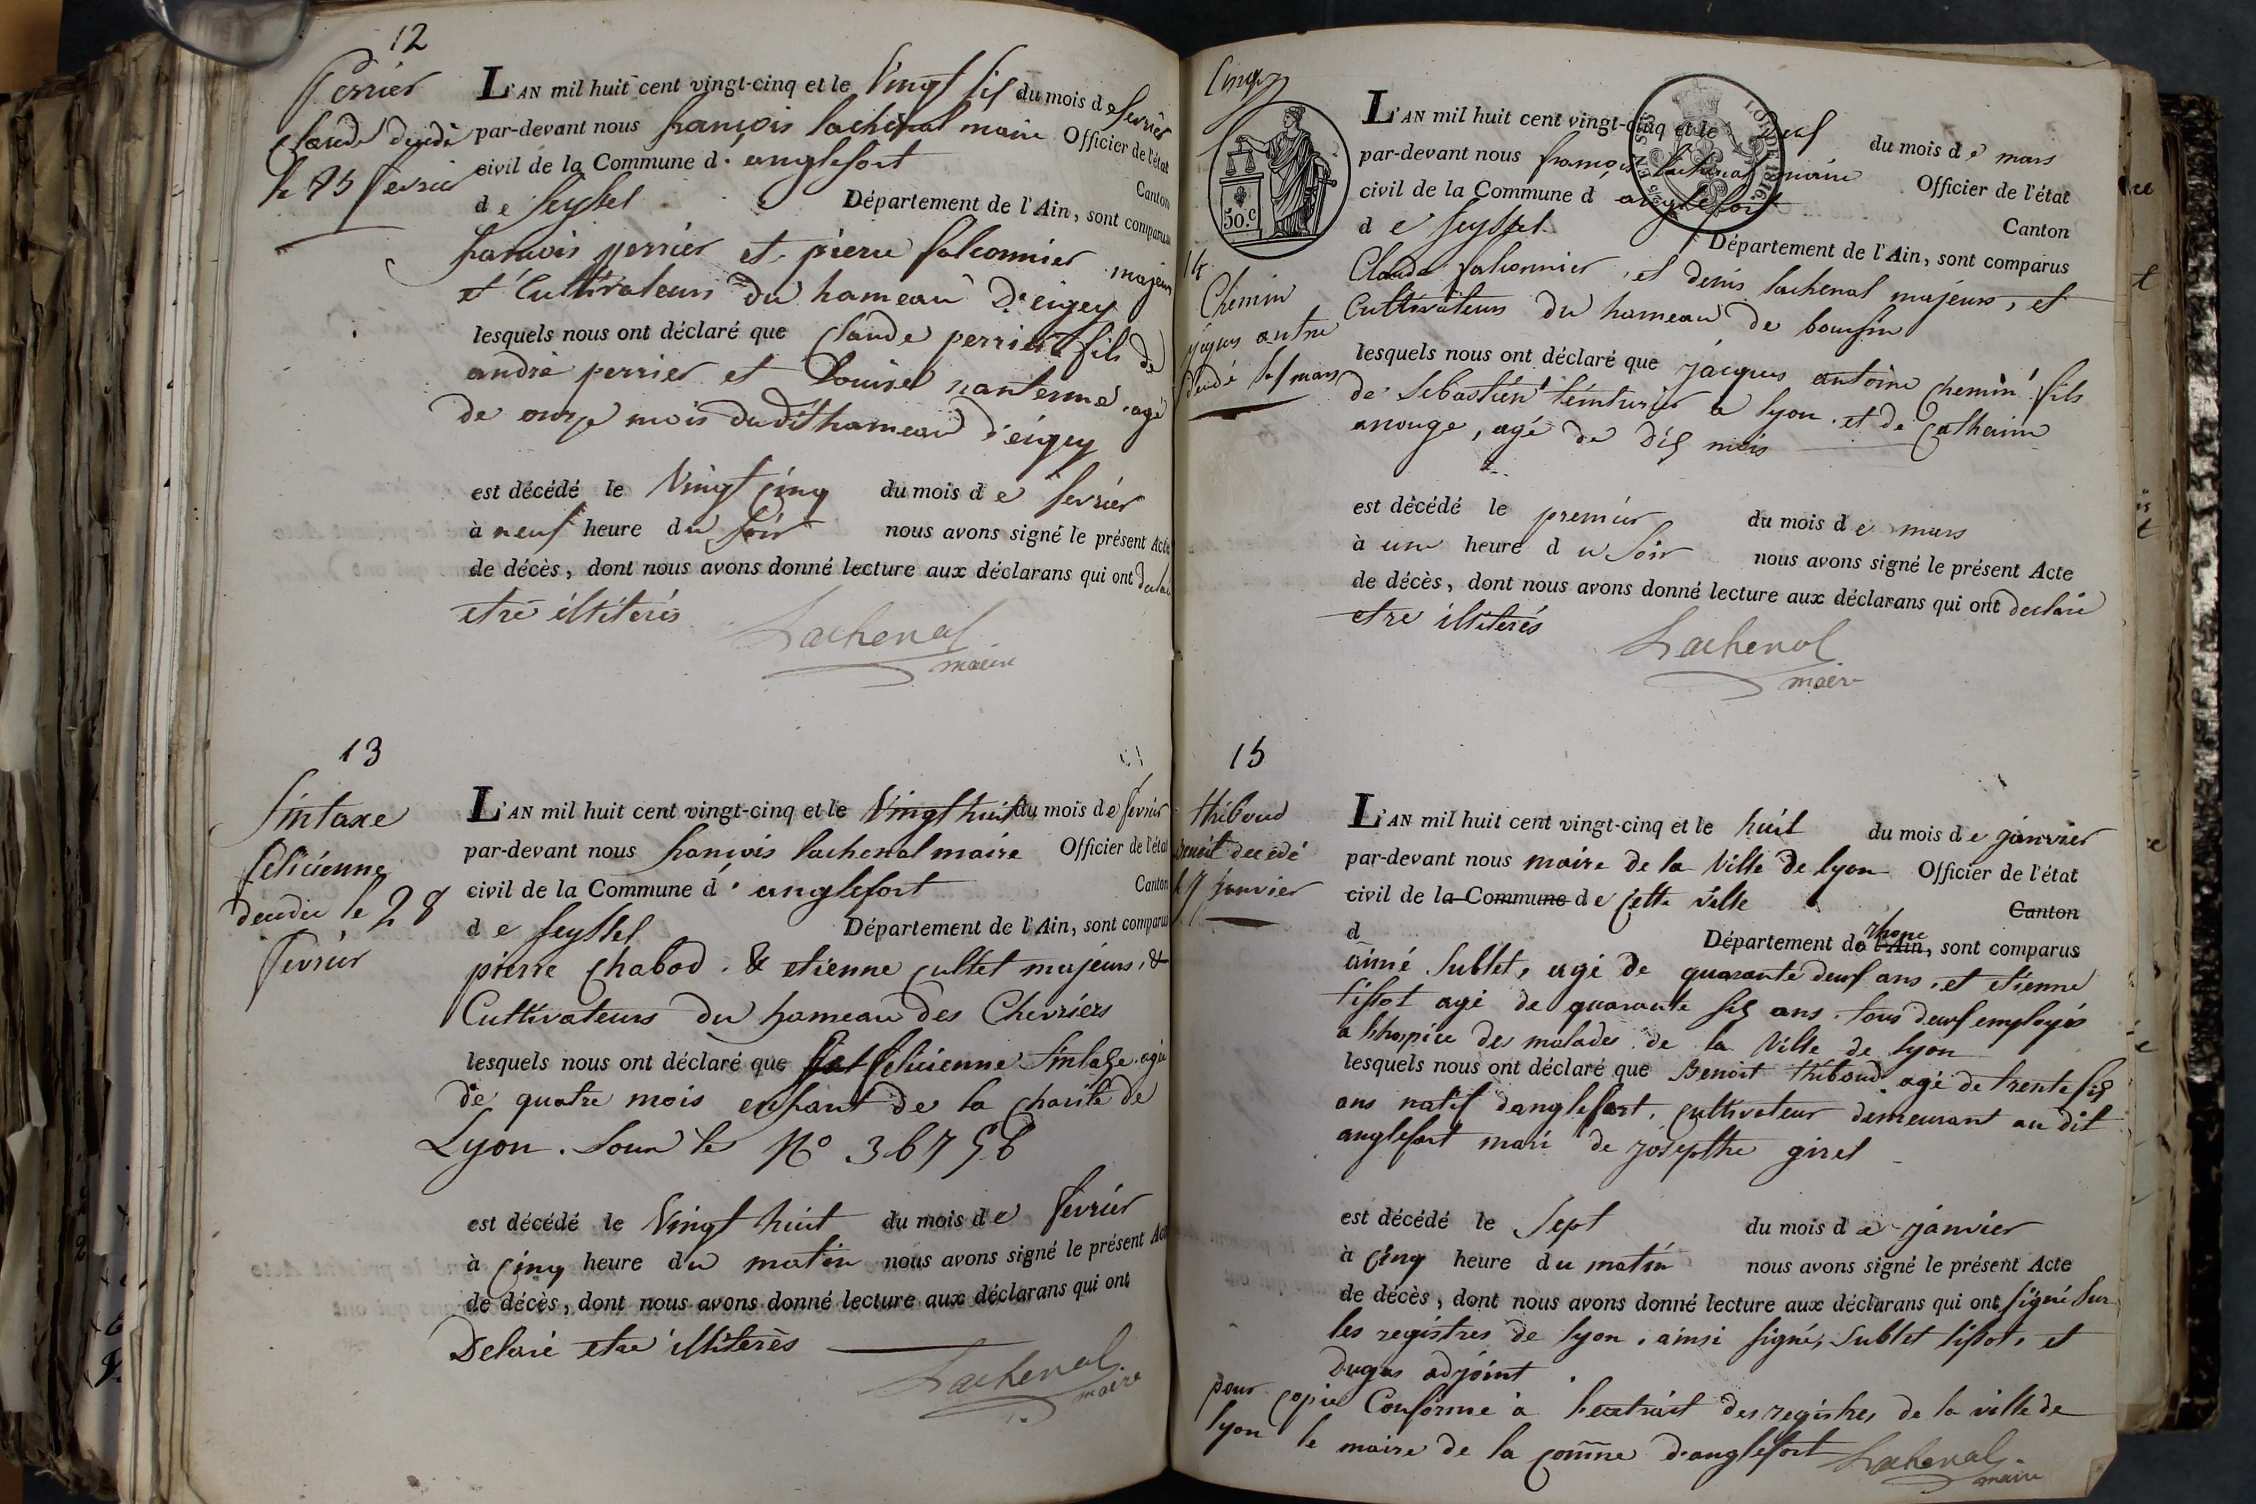 12
Perrier
Claude décédé
le 25 fevrier
L'AN mil huit cent vingt-cinq et le Vingt six du mois de fevrier
par-devant nous françois lachenal maire Officier de l'état
civil de la Commune d'anglefort Canton
de seyssel Département de l'Ain, sont comparus
françois perrier et pierre falconnier majeurs
et Cultivateurs du hameau D'eigey
lesquels nous ont déclaré que Claude perrier fils de
andré perrier et Louise nantermé agé
de onze mois dudit hameau d'eigey
est décédé le Vingt cinq du mois de fevrier
à neuf heure du soir nous avons signé le présent Acte
de décès, dont nous avons donné lecture aux déclarans qui ont
etre illiterés
Lachenal
maire
13
Sintaxe
felicienne
decedée le 28
fevrier
L'AN mil huit cent vingt-cinq et le Vingt huit du mois de fevrier
par-devant nous françois lachenal maire Officier de l'état
civil de la Commune d'anglefort Canton
de seyssel Département de l'Ain, sont comparus
pierre Chabod & etienne Cullet majeurs, &
Cultivateurs du hameau des Chevriers
lesquels nous ont déclaré que felicienne Sintaxe agée
de quatre mois enfant de la Charité de
Lyon. Sous le N°
est décédé le Vingt huit du mois de fevrier
à cinq heure du matin nous avons signé le présent Acte
de décès, dont nous avons donné lecture aux déclarans qui ont
Delaré etre illiterés
Lachenal
maire
Cinq
50.c
LOI DE 1816
14
Chemin
décédé le 1 mars
L'AN mil huit cent vingt-cinq et le deux du mois de mars
par-devant nous françois lachenal maire Officier de l'état
civil de la Commune d'anglefort Canton
de seyssel Département de l'Ain, sont comparus
Claude falconnier, et denis lachenal majeurs, et
Cultivateurs du hameau de boursin
lesquels nous ont déclaré que jacques antoine Chemin fils
de Sebastien teinturier a lyon et de Catherine
anouge, agé de dix mois
est décédé le premier du mois de mars
à une heure du soir nous avons signé le présent Acte
de décès, dont nous avons donné lecture aux déclarans qui ont declaré
etre illiterés
Lachenal
maire
15
thiboud
Benoit decedé
le 7 janvier
L'AN mil huit cent vingt-cinq et le huit du mois de janvier
par-devant nous maire de la Ville de lyon Officier de l'état
civil de la Commune de Cette ville Canton
d
rhone
Département de l'Ain, sont comparus
aimé Sublet, agé de quarante deux ans, et etienne
tissot agé de quarante six ans. tous deux employés
a l'hospice de malades de la Ville de lyon
lesquels nous ont déclaré que Benoit thiboud agé de trente six
ans natif danglefort, cultivateur demeurant au dit
anglefort mari de josepthe girel
est décédé le Sept du mois de janvier
à cinq heure du matin nous avons signé le présent Acte
de décès, dont nous avons donné lecture aux déclarans qui ont signé Sur
les registres de lyon, ainsi signés, Sublet tissot, et
dugas adjoint
pour copie Conforme à l'extrait des registres de la ville de
lyon le maire de la comne d'anglefort Lachenal
maire